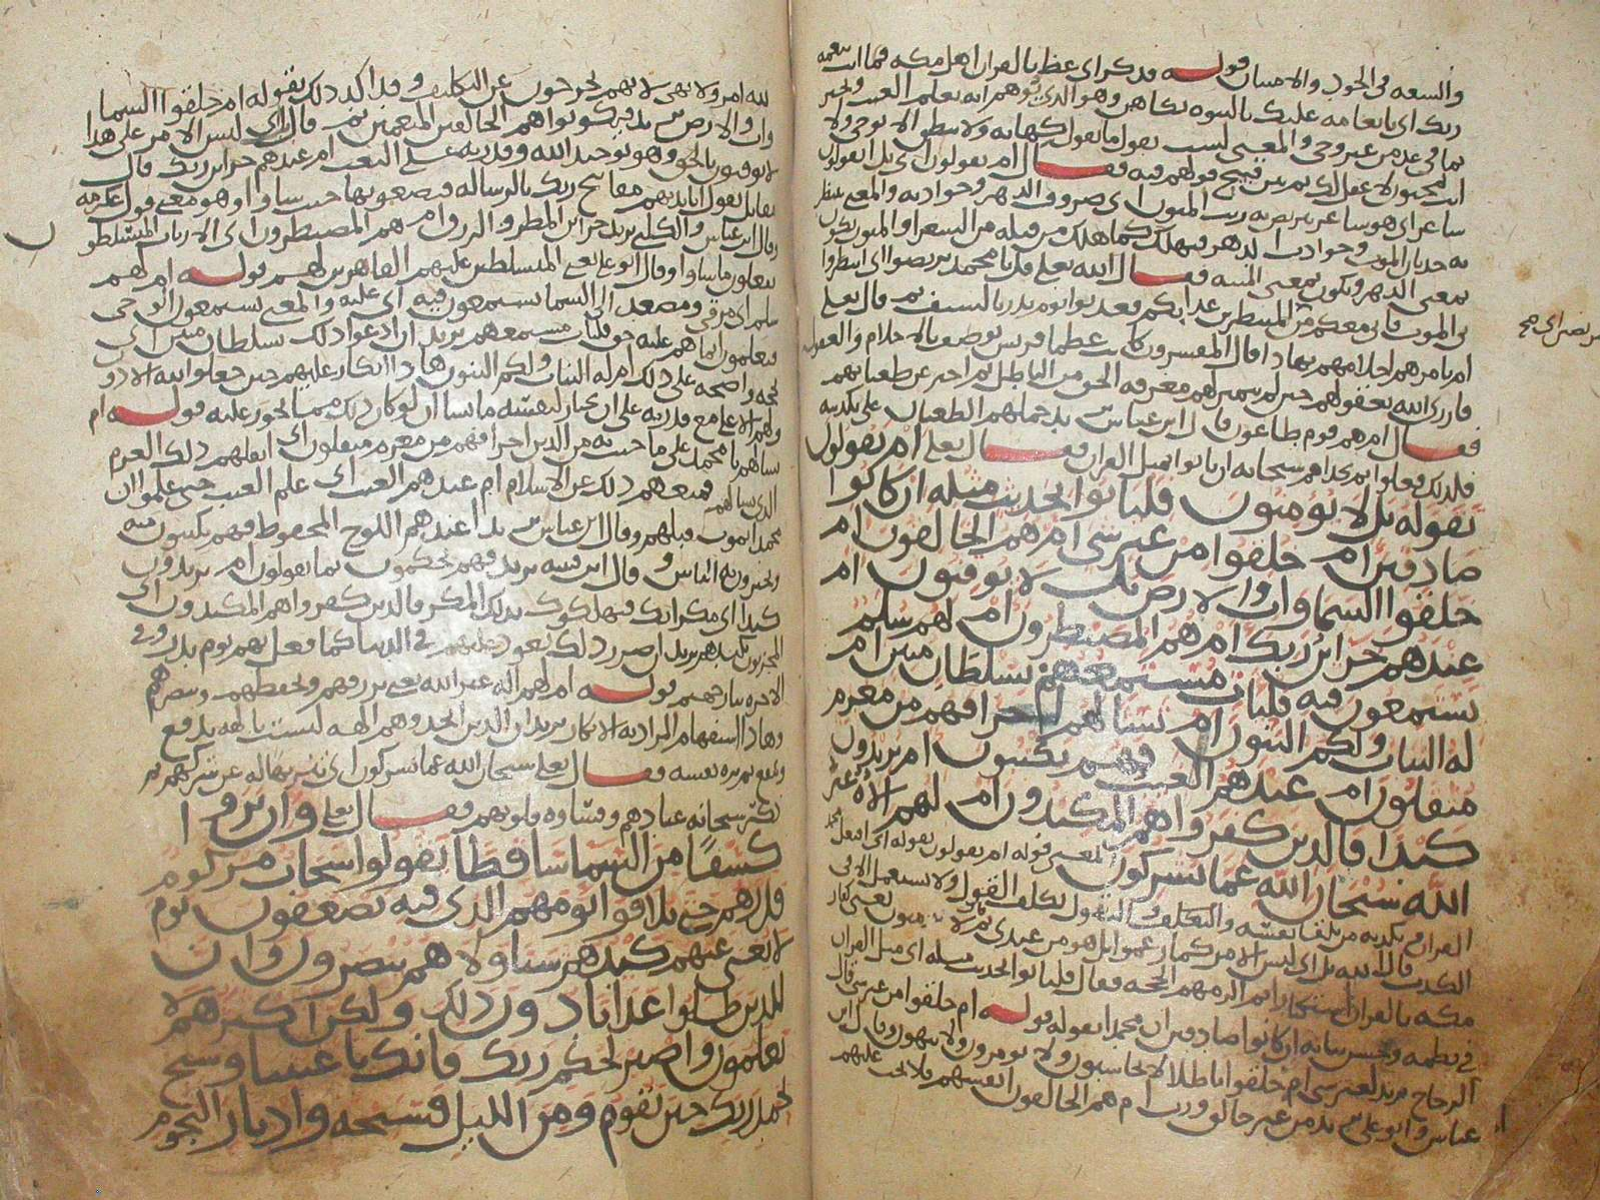 والسعه في الجود والاحسان قوله فذكر اي عظ بالقران اهل مكه فما انت بنعمه
ربك اي بانعامه عليك بالنبوه بكاهن وهو الذي يوهم انه يعلم الغيب ويخبر
بما في غد من غير وحي والمعنى لست تقول ما تقوله كهانه ولا تنطق الا بوحي ولا
انت بمجنون لا عقل لك ثم بين قبيح قولهم فيه فقال ام يقولون اي بل ايقولون
شاعر اي هو شاعر نتربص به ريب المنون اي صروف الدهر وحوادثه والمعنى ننتظر
به حدثان الموت وحوادث الدهر فيهلك كما هلك من قبله من الشعرا والمنون يكون
بمعنى الدهر ويكون بمعنى المنيه فقال الله تعلى قل يا محمد تربصوا اي انتظروا
بي الموت فاني معكم من المنتظرين عذابكم فعذبوا يوم بدر بالسيف ثم قال تعلى
ام تامرهم احلامهم بهاذا قال المفسرون كانت عظما قريش توصف بالاحلام والعقول
فازرى الله بعقولهم حين لم تثمر لهم معرفه الحق من الباطل ثم اخبر عن طغيانهم
فقال ام هم قوم طاغون قال ابن عباس بل حملهم الطغيان على تكذيبه
فلذلك فعلوا ثم تحداهم سبحانه ان ياتوا بمثل القران فقال تعلى ام يقولون
تقوله بل لا يؤمنون فلياتوا بحديث مثله ان كانوا
صادقين ام خلقوا من غير شي ام هم الخالقون ام
خلقوا السماوات والارض بل لا يوقنون ام
عندهم خزائن ربك ام هم المصيطرون ام لهم سلم
يستمعون فيه فليات مستمعهم بسلطان مبين ام
له البنات ولكم البنون ام تسالهم اجرا فهم من مغرم
مثقلون ام عندهم الغيب فهم يكتبون ام يريدون
كيدا فالذين كفروا هم المكيدون ام لهم الاه غير
الله سبحان الله عما يشركون المعنى قوله ام يقولون تقوله اي افتعل محمد
القران تكذبه من تلقا نفسه والتكلف والتقول تكلف القول ولا يستعمل الا في
الكذب قال الله بل اي ليس الامر كما زعموا بل هو من عندي لا يؤمنون يعني كفار
مكه بالقران استكبارا ثم الزمهم الحجه فقال فلياتوا بحديث مثله اي مثل القران
في نظمه وحسن بيانه ان كانوا صادقين ان محمدا تقوله قوله ام خلقوا من غير شي قال
الزجاج يريد لغير شي ام خلقوا باطلا لا يحاسبون ولا يؤمرون ولا ينهون وقال ابن
عباس وابو علي يريد من غير خالق ورب ام هم الخالقون انفسهم فلا يجب عليهم
لله امر ولا نهي لانهم يخرجون عن التكليف وقد اكد ذلك بقوله ام خلقوا السما
وات والارض فيكونوا هم الخالقين المنعمين ثم قال بل اي ليس الامر على هذا
لا يوقنون بالحق وهو توحيد الله وقدرته على البعث ام عندهم خزاين ربك قال
مقاتل يقول ابايديهم مفاتيح ربك بالرساله فيضعونها حيث شاوا وهو معنى قول عكرمه
وقال ابن عباس والكلبي يريد خزاين المطر والرزق ام هم المصيطرون اي الارباب المتسلطو
يفعلون ما شاوا وقال ابو علي يعني المتسلطين عليهم القاهرين لهم قوله ام لهم
سلم اي مرقى ومصعد الى السما يستمعون فيه اي عليه والمعنى يستمعون الوحي
فيعلمون انما هم عليه حق فليات مستمعهم يريد ان ادعوا ذلك بسلطان مبين اي
بحجه واضحه على ذلك ام له البنات ولكم البنون هاذا انكار عليهم حين جعلوا لله الادون
ولهم الاعلى مع قدرته على ان يختار لنفسه ما يشا ان لو كان ذلك مما يجوز عليه قوله ام
تسالهم يا محمد على ما جيت به من الدين اجرا فهم من مغرم مثقلون اي اثقلهم ذلك الغرم
الذي سالتهم فمنعهم ذلك عن الاسلام ام عندهم الغيب اي علم الغيب حتى علموا ان
محمدا يموت قبلهم وقال ابن عباس يريد اعندهم اللوح المحفوظ فهم يكتبون فيه
ويخبرون به الناس وقال ابن قتيبه يريد فهم يحكمون بما يقولون ام يريدون
كيدا اي مكرا بك فيهلكوك بذلك المكر فالذين كفروا هم المكيدون اي
المجزيون بكيدهم يريد ان ضرر ذلك يعود عليهم في الدنيا كما فعل بهم يوم بدر وفي
الاخره بنار جهنم قوله ام لهم اله غير الله يعني يرزقهم ويحفظهم وينصرهم
وهاذا استفهام المراد به الانكار يريد ان الذين اتخذوهم الهه ليست بالهه تدفع
وتنفع ثم نزه نفسه فقال تعلى سبحان الله عما يشركون اي تنزيها له عن شركهم ثم
ذكر سبحانه عنادهم وقساوه قلوبهم فقال تعلى وان يروا
كسفا من السما ساقطا يقولوا سحاب مركوم
فذرهم حتى يلاقوا يومهم الذي فيه يصعقون يوم
لا يغني عنهم كيدهم شيا ولا هم ينصرون وان
للذين ظلموا عذابا دون ذلك ولكن اكثرهم لا
يعلمون واصبر لحكم ربك فانك باعيننا وسبح
بحمد ربك حين تقوم ومن الليل فسبحه وادبار النجوم